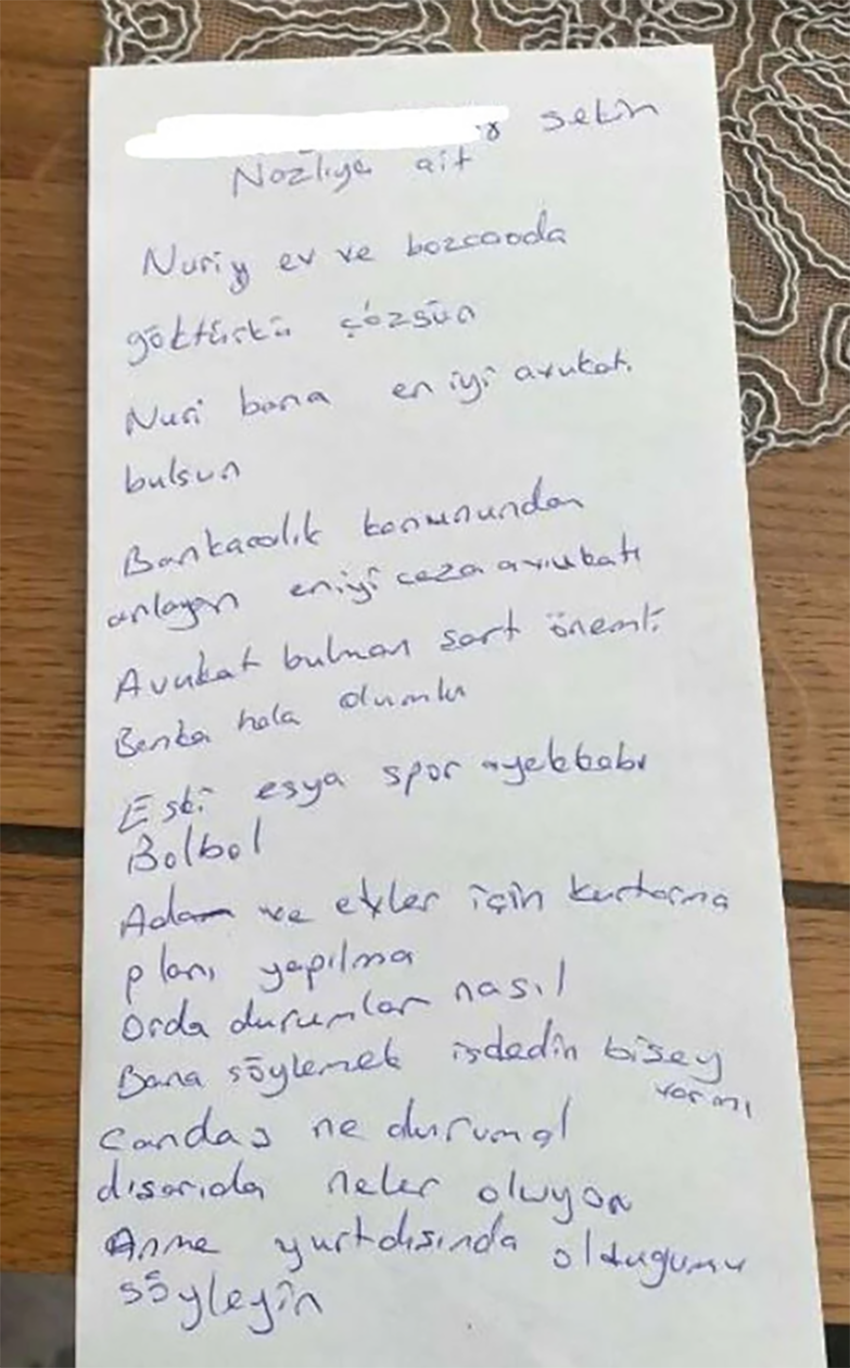 sekin
Nazlıya ait
Nuriy ev ve bozcaada
göktürkü çözsün
Nuri bana en iyi avukatı
bulsun
Bankacılık kanunundan
anlayan en iyi ceza avukatı
Avukat bulman sart önemli
Banka hala olumlu
Eski esya spor ayakkabı
Bolbol
Adam ve evler için kurtarma
planı yapılma
Orda durumlar nasıl
Bana söylemek isdedin bisey
varmı
Candas ne durumd
dısarıda neler oluyor
Anne yurtdısında oldugumu
söyleyin